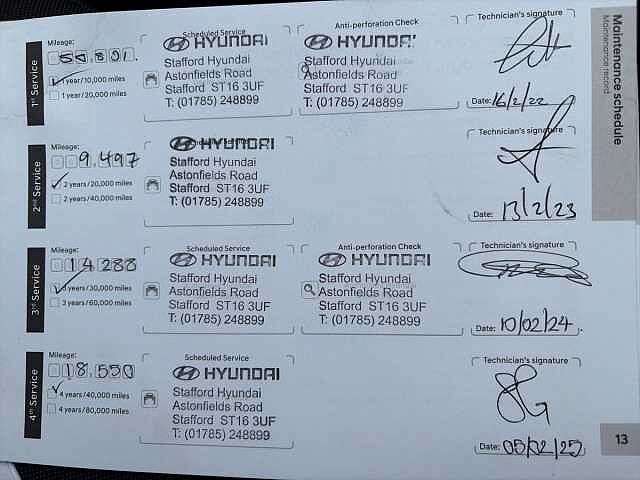 Maintenance schedule
Maintenance record
1st Service
Mileage:
1 year/10,000 miles
1 year/20,000 miles
Scheduled Service
HYUNDAI
Stafford Hyundai
Astonfields Road
Stafford ST16 3UF
T: (01785) 248899
Anti-perforation Check
HYUNDAI
Stafford Hyundai
Astonfields Road
Stafford ST16 3UF
T: (01785) 248899
Technician's signature
Date: 16/2/22
2nd Service
Mileage:
9,497
2 years/20,000 miles
2 years/40,000 miles
HYUNDAI
Stafford Hyundai
Astonfields Road
Stafford ST16 3UF
T: (01785) 248899
Technician's signature
Date: 13/2/23
3rd Service
Mileage:
14288
3 years/30,000 miles
3 years/60,000 miles
Scheduled Service
HYUNDAI
Stafford Hyundai
Astonfields Road
Stafford ST16 3UF
T: (01785) 248899
Anti-perforation Check
HYUNDAI
Stafford Hyundai
Astonfields Road
Stafford ST16 3UF
T: (01785) 248899
Technician's signature
Date: 10/02/24
4th Service
Mileage:
18,550
4 years/40,000 miles
4 years/80,000 miles
Scheduled Service
HYUNDAI
Stafford Hyundai
Astonfields Road
Stafford ST16 3UF
T: (01785) 248899
Technician's signature
Date: 05/02/25
13